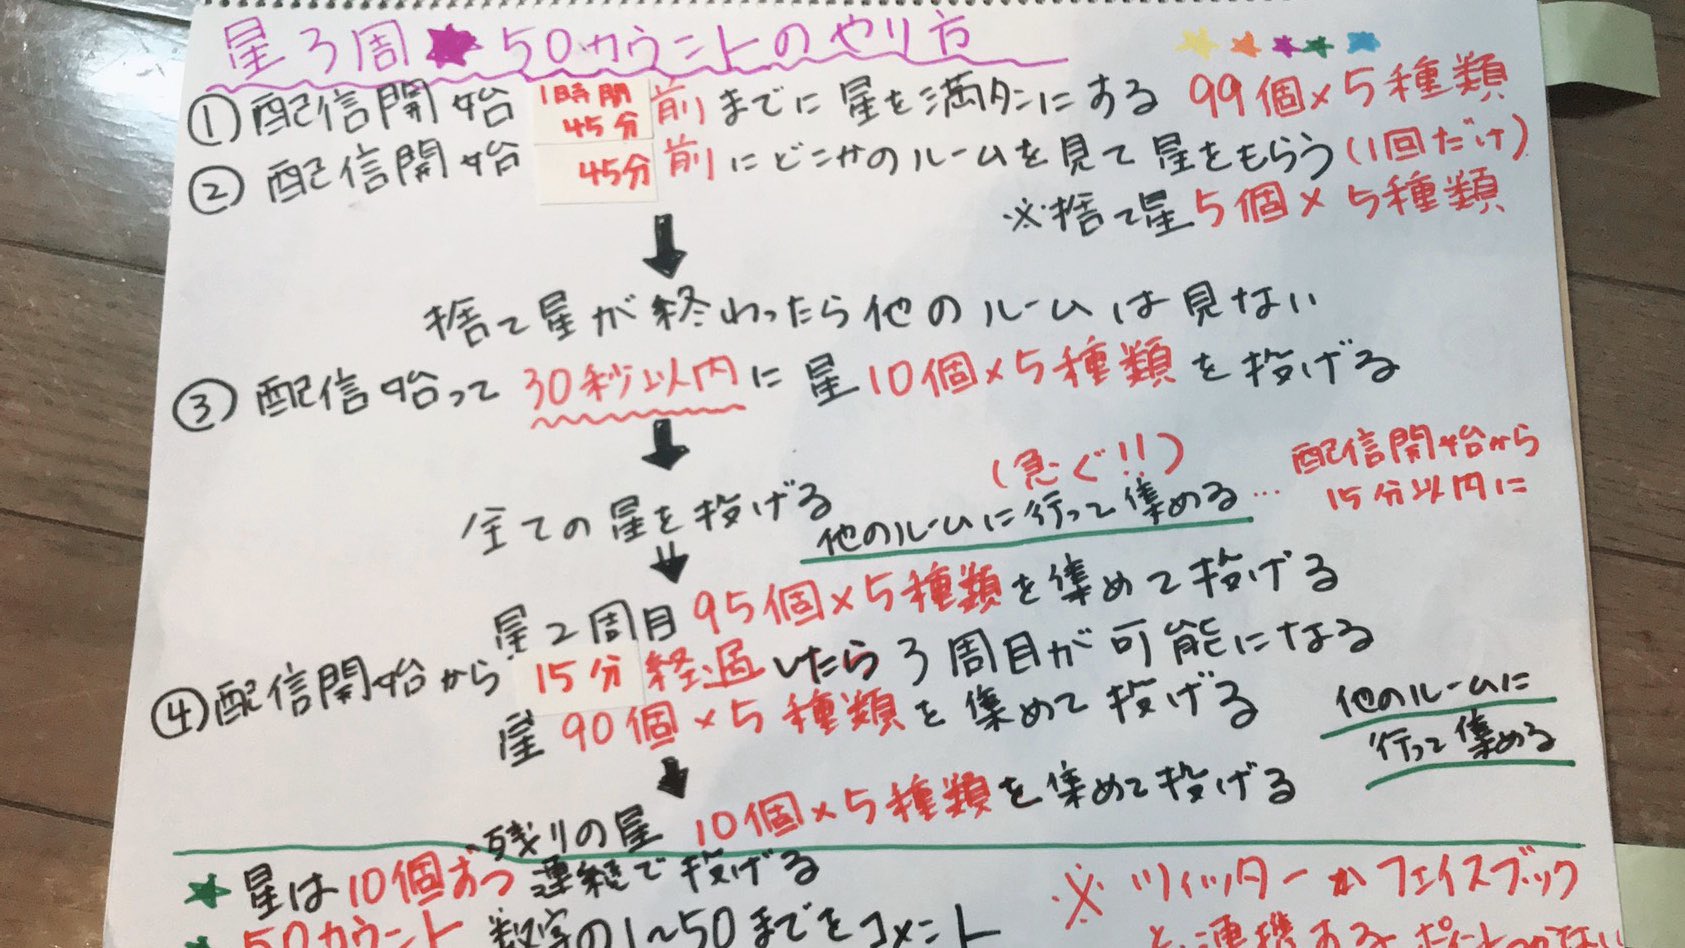 星3周★50カウントのやり方
①配信開始1時間45分前までに星を満タンにする 99個×5種類
②配信開始45分前にどこかのルームを見て星をもらう(1回だけ)
※捨て星5個×5種類
捨て星が終わったら他のルームは見ない
③配信始って30秒以内に星10個×5種類を投げる
全ての星を投げる
(急ぐ!!)
他のルームに行って集める…配信開始から15分以内に
星2周目95個×5種類を集めて投げる
④配信開始から15分経過したら3周目が可能になる
星90個×5種類を集めて投げる
他のルームに行って集める
残りの星10個×5種類を集めて投げる
★星は10個ずつ連続で投げる
★50カウント 数字の1〜50までをコメント
※ツイッターかフェイスブック
と連携する